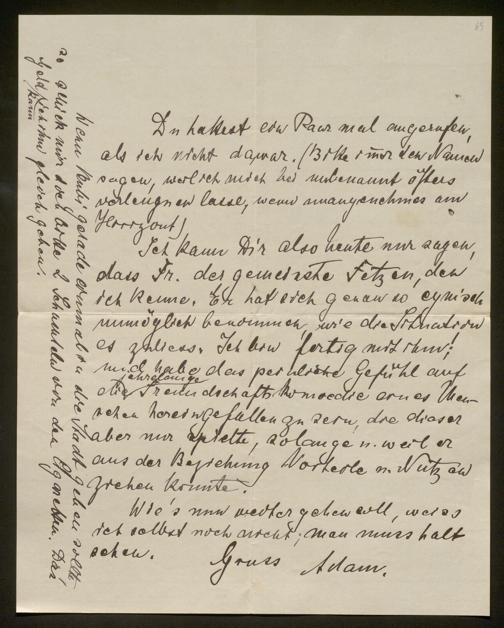 Du hattest ein Paar mal angerufen,
als ich nicht da war. (Bitte immer den Namen
sagen, weil ich mich bei unbenannt öfters
verleugnen lasse, wenn unangenehmes am
Horizont)
Ich kann Dir also heute nur sagen,
dass Fr. der gemeinste Fetzen, den
ich kenne. Er hat sich genau so cynisch
unmöglich benommen, wie die Situation
es zuliess. Ich bin fertig mit ihm;
und habe das peinliche Gefühl auf
die jahrelange Freundschaftskomoedie eines Men-
schen hereingefallen zu sein, die dieser
aber nur spielte, solange u. weil er
aus der Beziehung Vorteile u. Nutzen
ziehen konnte.
Wie's nun weitergehen soll, weiss
ich selbst noch nicht; man muss halt
sehen.
Gruss Adam.
Wenn Rudi gerade einmal in die Stadt gehen sollte
so schick mir doch bitte 2 Schachteln von den Cigaretten. Das
Geld kann ich ihm gleich geben.
85